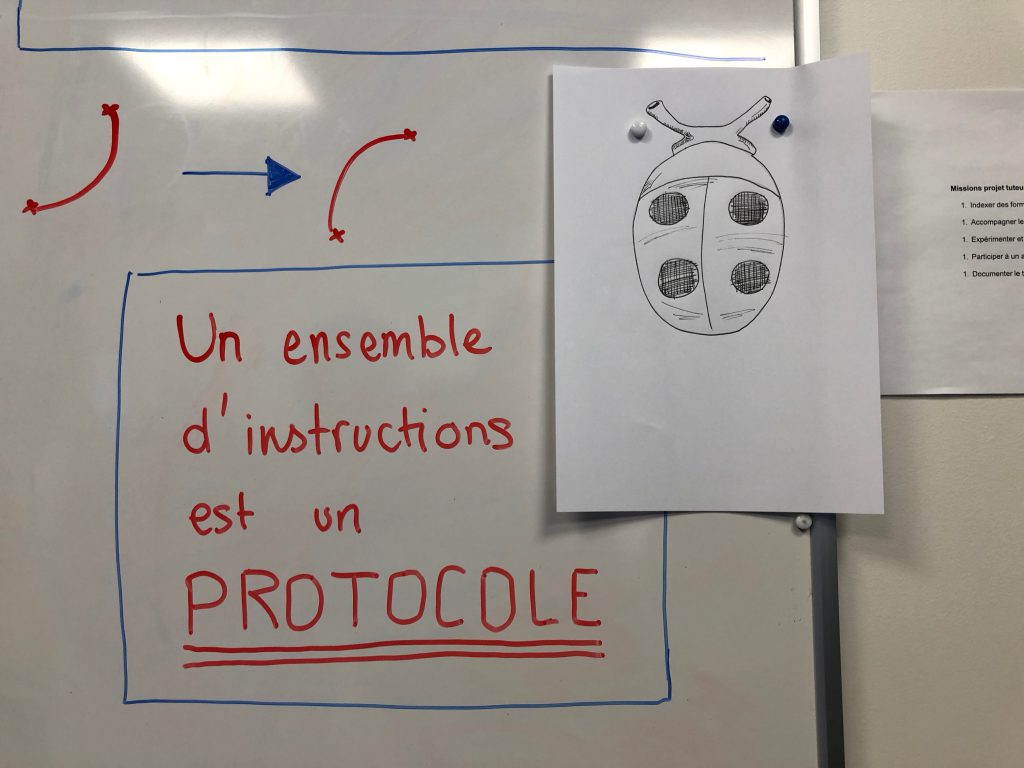 Un ensemble
d'instructions
est un
PROTOCOLE
Missions projet tuteu
1. Indexer des form
1. Accompagner le
1. Expérimenter et
1. Participer à un a
1. Documenter le t